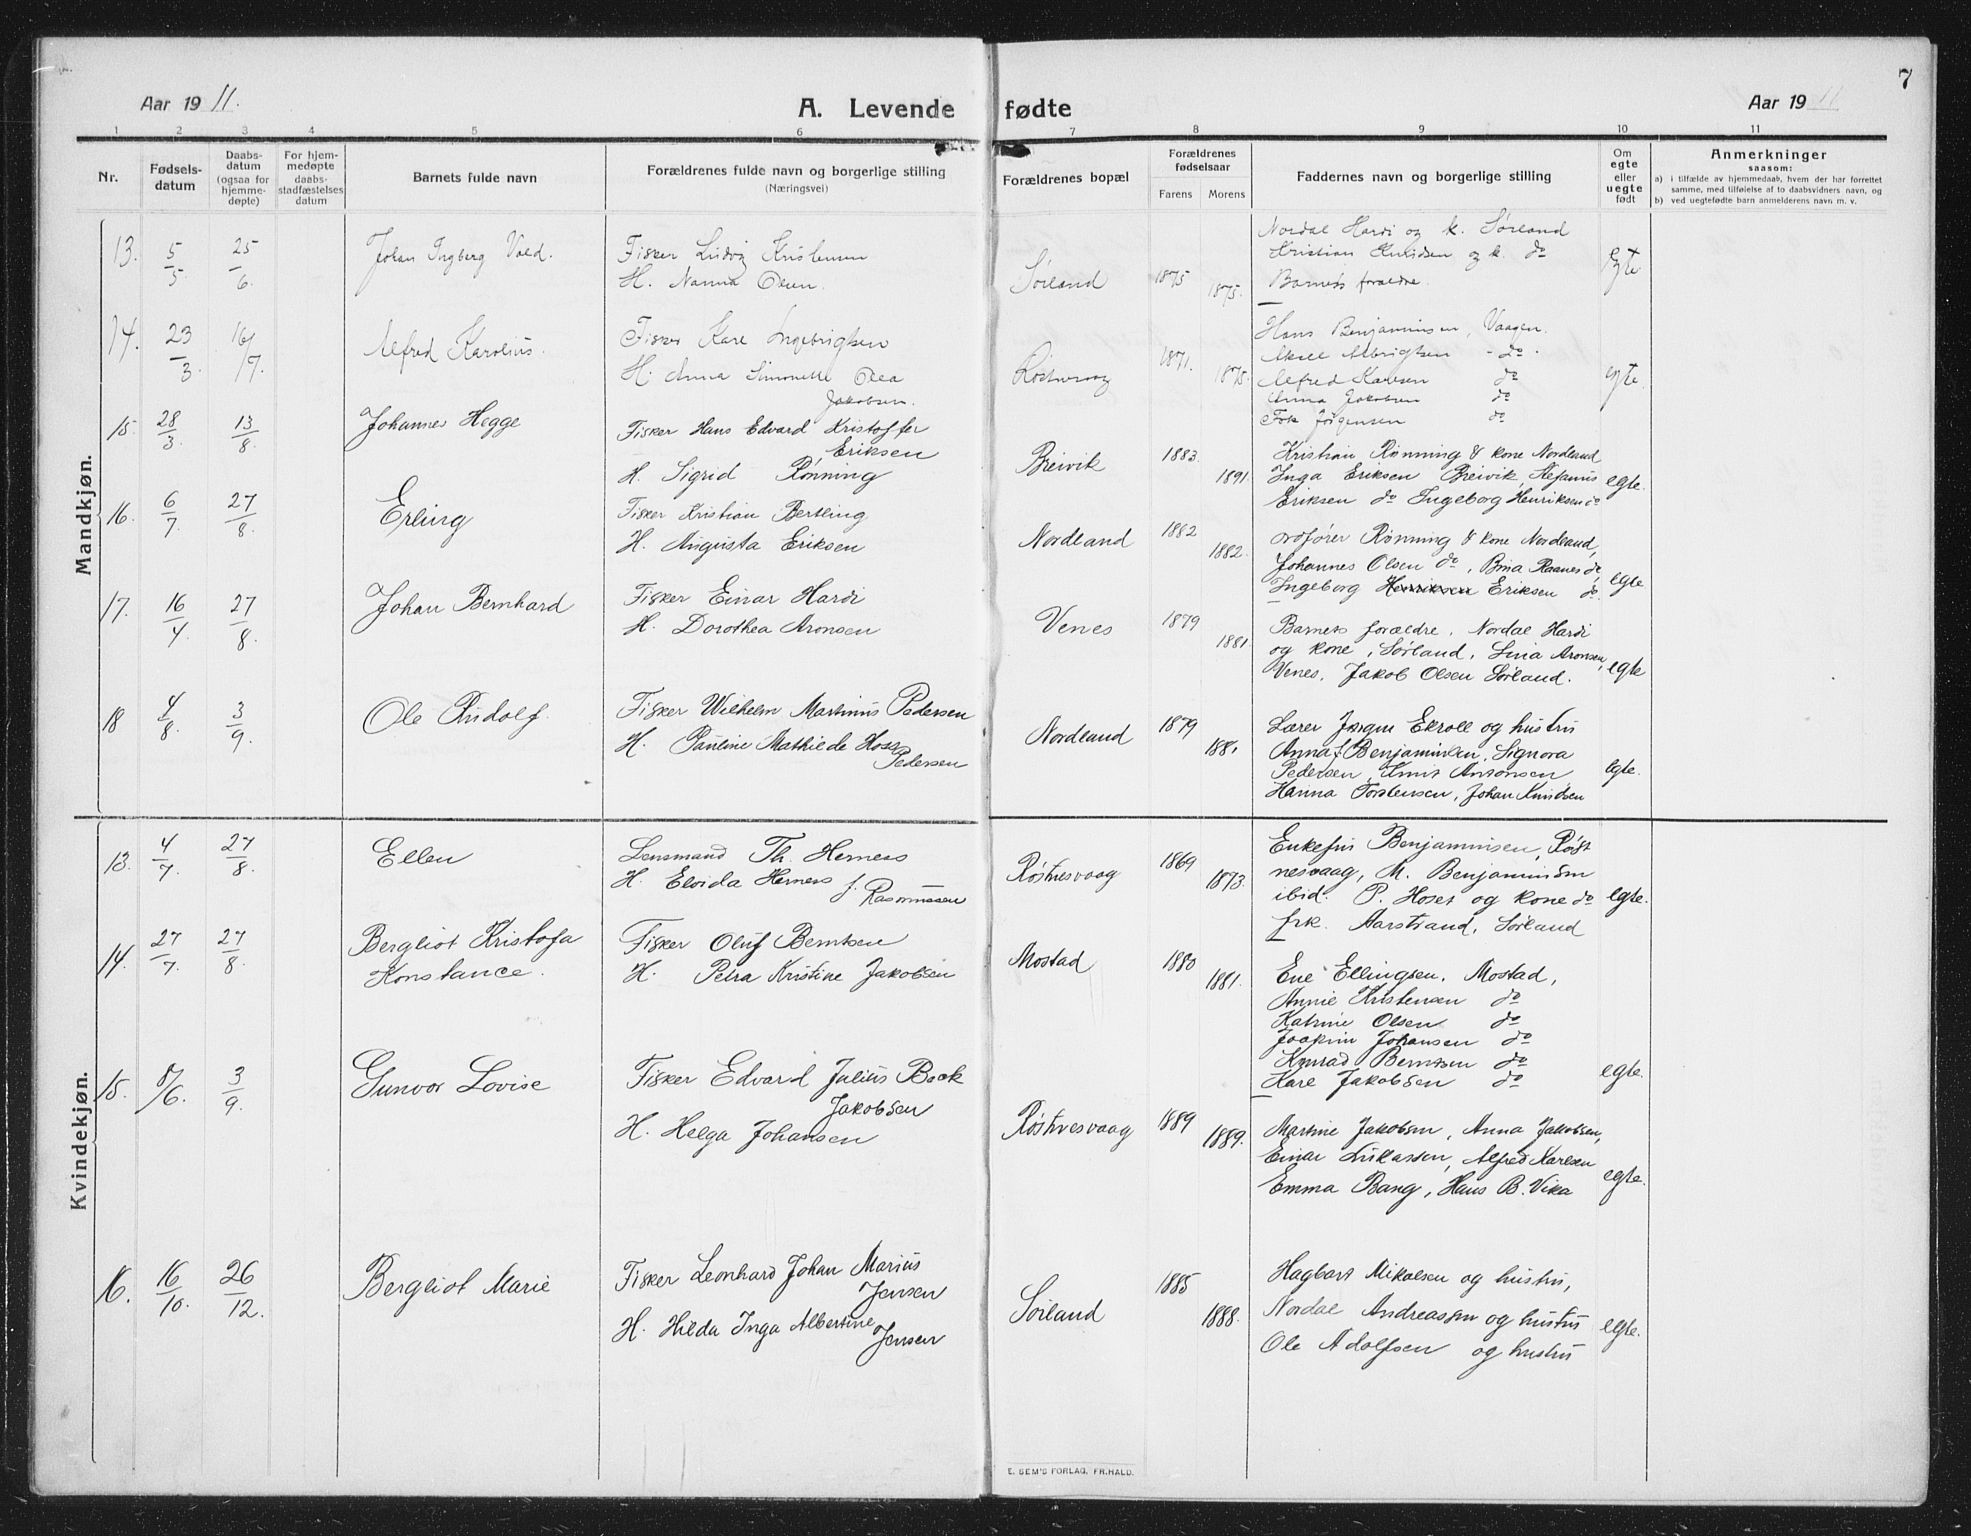 7
Aar 1911.
A. Levende fødte
Aar 1911
1 2 3 4 5 6 7 8 9 10 11
Nr.
Fødsels-
datum
Daabs-
datum
(ogsaa for
hjemme-
døpte)
For hjem-
medøpte
daabs-
stadfæstelses
datum
Barnets fulde navn
Forældrenes fulde navn og borgerlige stilling
(Næringsvei)
Forældrenes bopæl
Forældrenes
fødselsaar
Farens Morens
Faddernes navn og borgerlige stilling
Om
egte
eller
uegte
født
Anmerkninger
saasom:
a) i tilfælde av hjemmedaab, hvem der har forrettet
samme, med tilføielse af to daabsvidners navn, og
b) ved uegtefødte barn anmelderens navn m. v.
Mandkjøn.
13. 5/5 25/6 Johan Ingberg Vald.
Fisker Ludvig Kristensen
H. Nanna Olsen.
Sørland 1875 1875.
Nordal Hardi og k. Sørland
Kristian Knudsen og k. do
Barnets forældre.
Egte
14. 23/3. 16/7. Alfred Karolius.
Fisker Kare Ingebrigtsen
H. Anna Simonette Olea
Jakobsen.
Røstnesvaag 1871. 1875.
Hans Benjaminsen, Vaagen.
Aksel Albrigtsen - do.
Alfred Karlsen do
Anna Jakobsen do
Jørgensen do
egte.
15. 28/3 13/8. Johannes Hegge
Fisker Hans Edvard Kristoffer
Eriksen
H. Sigrid Rønning
Breivik 1883. 1891.
Kristian Rønning & kone Nordland
Inga Eriksen Breivik, Stefanus
Eriksen do Ingeborg Henriksen do
egte.
16. 6/7. 27/8. Erling
Fisker Kristian Bertling
H. Augusta Eriksen
Nordland 1882 1882.
Rønning & kone Nordland,
Johannes Olsen do, Raanes do,
Ingeborg Henriksen Eriksen do.
egte.
17. 16/4 27/8. Johan Bernhard
Fisker Einar Hardi
H. Dorothea Aronsen
Venes 1879 1881.
Barnets forældre, Nordal Hardi
og kone, Sørland, Lina Aronsen,
Venes, Jakob Olsen Sørland.
egte
18 4/8. 3/9. Ole Rudolf.
Fisker Wilhelm Martinus Pedersen
H. Pauline Mathilde Hoss
Pedersen
Nordland 1879 1881
Lærer Jørgen Ekroll og hustru
Anna f. Benjaminsen, Signora
Pedersen, Knut Antonsen,
Hanna Torstensen, Johan Knudsen
egte.
Kvindekjøn.
13. 4/7. 27/8. Ellen
Lensmand Th. Herness
H. Elvida Herness f. Rasmussen
Røstnesvaag 1869 1873.
Enkefru Benjaminsen, Røst
nesvaag, M. Benjaminsen
ibid. P. Hoset og kone do
frk. Aarstrand, Sørland
egte.
14. 27/7. 27/8. Bergliot Kristofa
Konstance.
Fisker Oluf Berntsen
H. Petra Kristine Jakobsen
Mostad 1880 1881.
Ene Ellingsen, Mostad,
Annie Kristensen do
Katrine Olsen do
Joakim Johansen do
Konrad Berntsen do
Kare Jakobsen do
egte.
15. 8/6. 3/9. Gunvor Lovise
Fisker Edvard Julius Bock
Jakobsen
H. Helga Johansen
Røstnesvaag 1889 1889.
Martine Jakobsen, Anna Jakobsen,
Einar Lukassen, Alfred Karlsen
Emma Bang, Hans B. Vika
egte.
16. 16/10. 26/12. Bergliot Marie
Fisker Leonhard Johan Marius
Jensen
H. Hilda Inga Albertine
Jensen
Sørland 1885 1888.
Hagbart Mikalsen og hustru,
Nordal Andreassen og hustru
Ole Adolfsen og hustru
egte.
E. SEM'S FORLAG, FR.HALD.